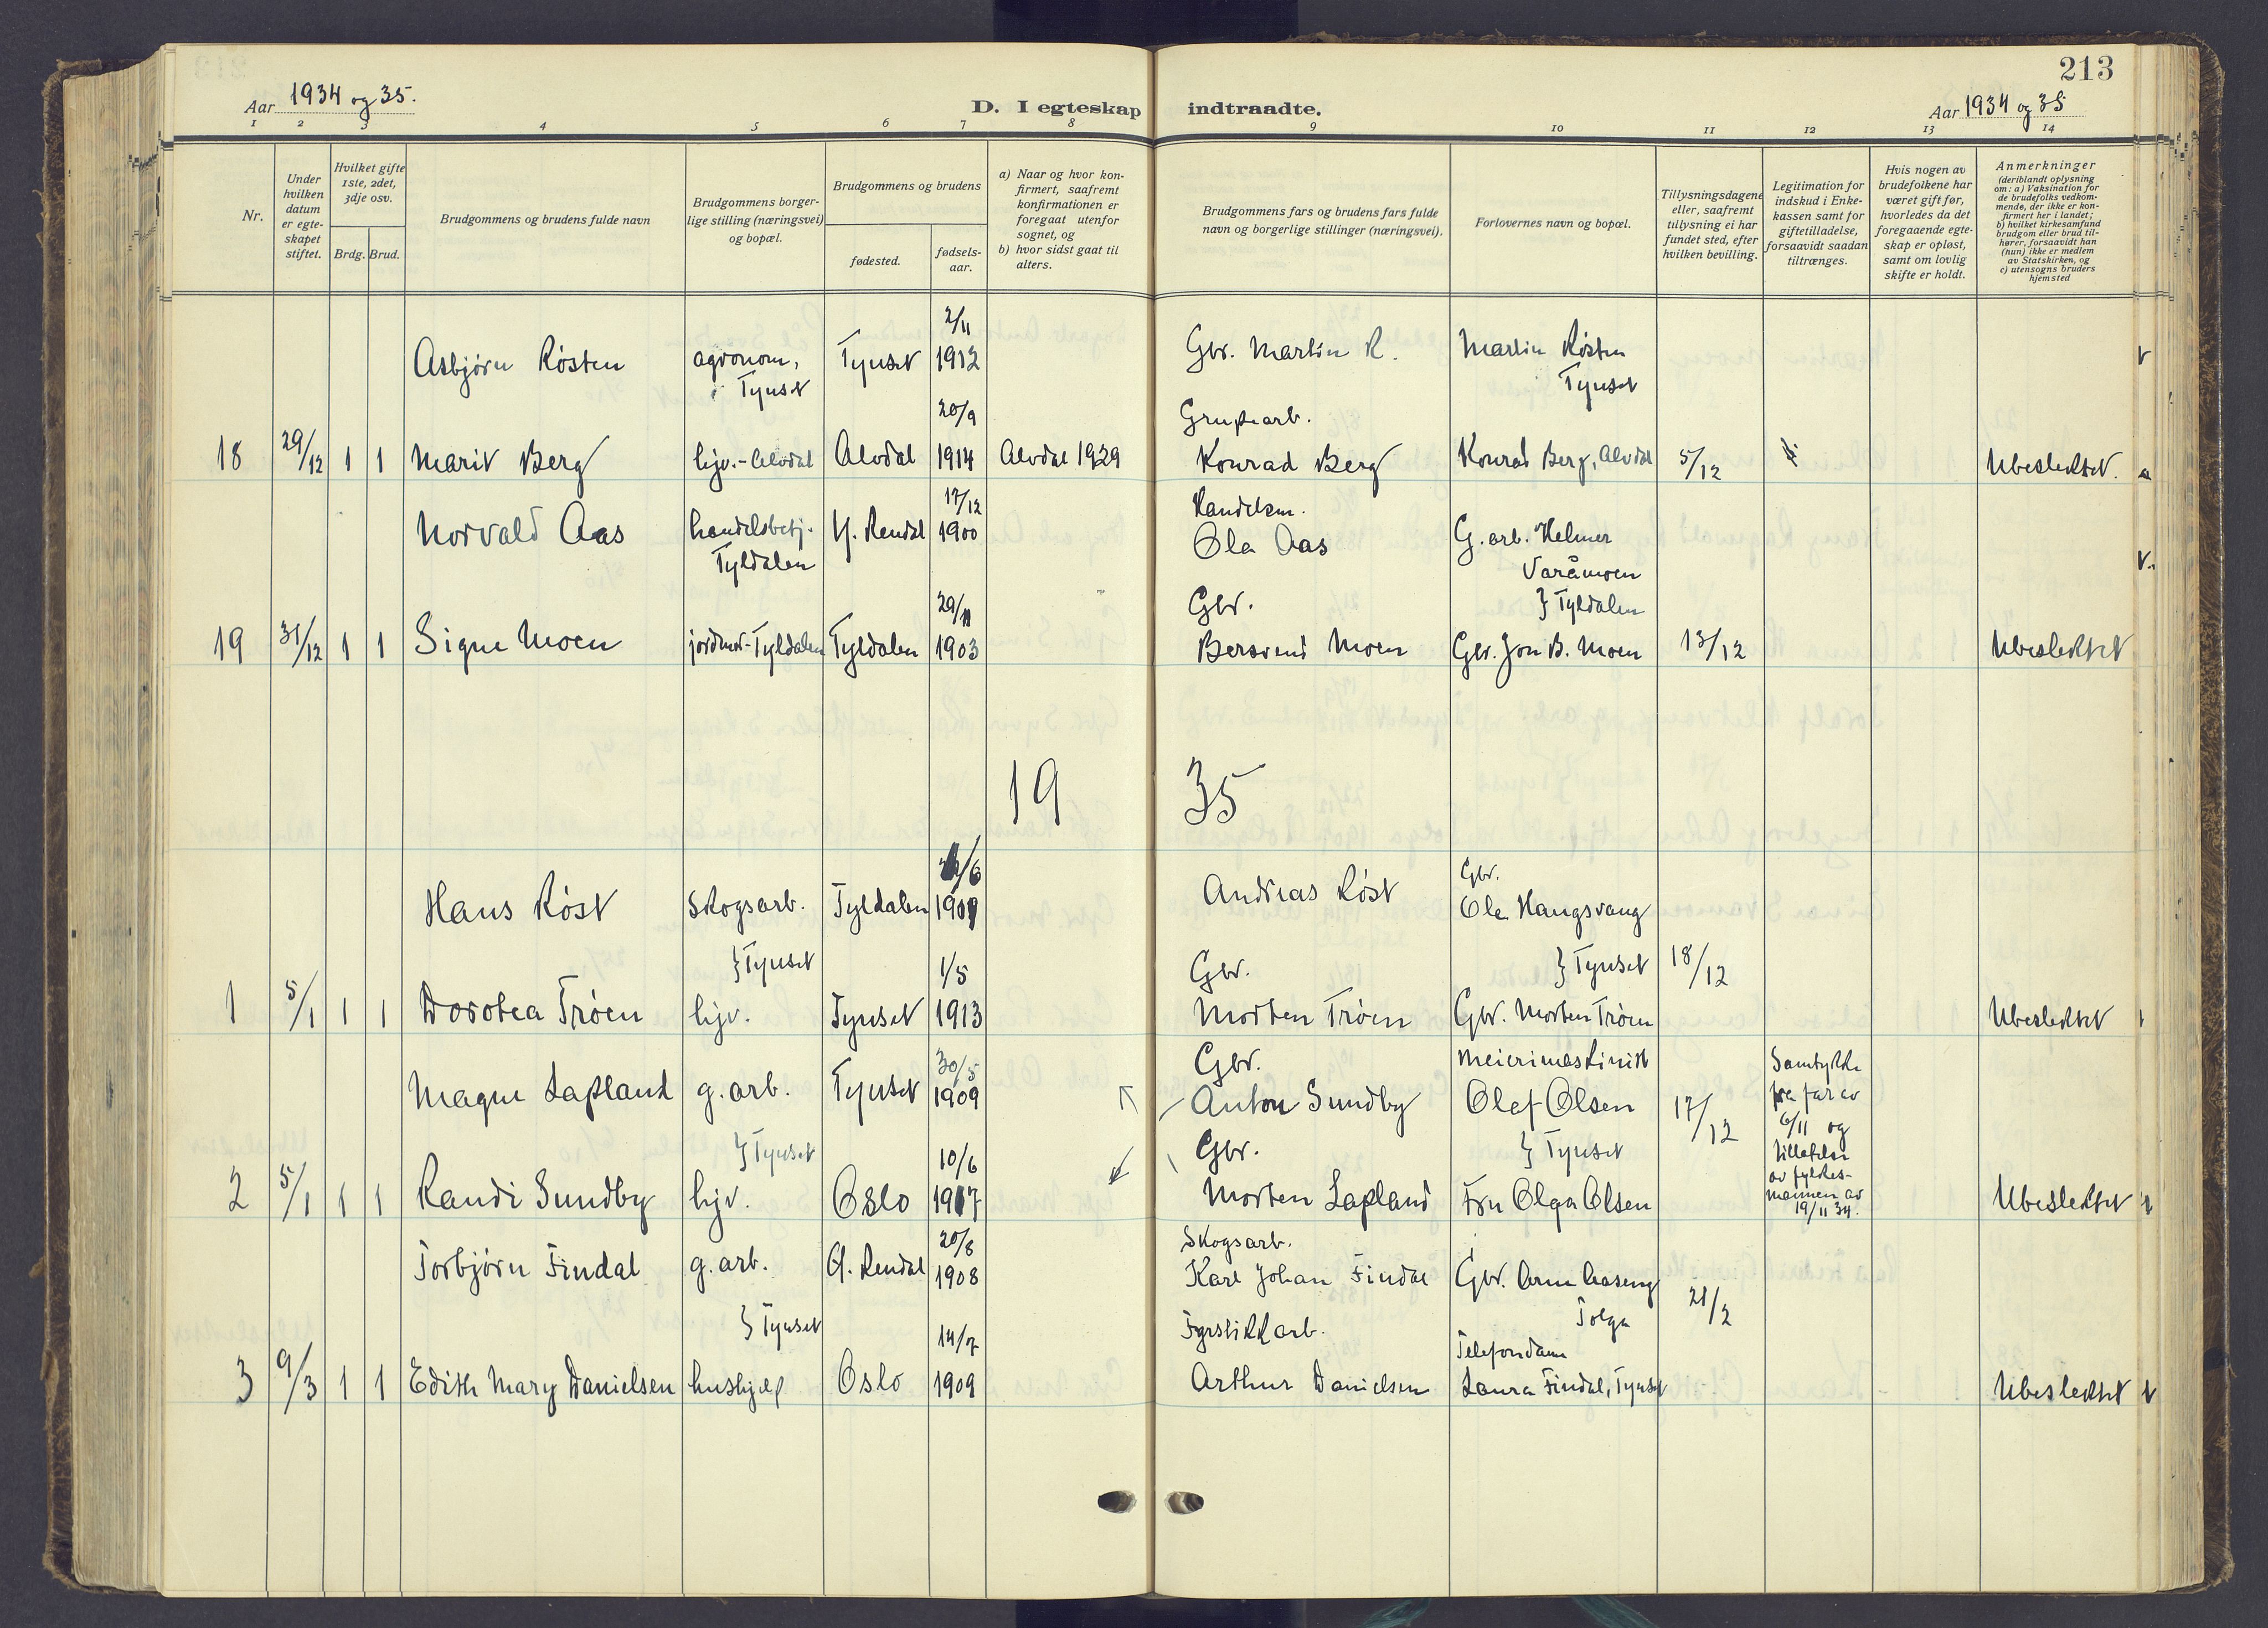 213
Aar 1934 og 35.
D. I egteskap indtraadte.
Aar 1934 og 35
1 2 3 4 5 6 7 8 9 10 11 12 13 14
Nr.
Under hvilken datum er egte-skapet stiftet.
Hvilket gifte 1ste, 2det, 3dje osv.
Brdg. Brud.
Brudgommens og brudens fulde navn
Brudgommens borger-lige stilling (næringsvei) og bopæl.
Brudgommens og brudens
fødested.
fødsels-aar.
a) Naar og hvor kon-firmert, saafremt konfirmationen er foregaat utenfor sognet, og
b) hvor sidst gaat til alters.
Brudgommens fars og brudens fars fulde navn og borgerlige stillinger (næringsvei).
Forlovernes navn og bopæl.
Tillysningsdagene eller, saafremt tillysning ei har fundet sted, efter hvilken bevilling.
Legitimation for indskud i Enke-kassen samt for giftetilladelse, forsaavidt saadan tiltrænges.
Hvis nogen av brudefolkene har været gift før, hvorledes da det foregaaende egte-skap er opløst, samt om lovlig skifte er holdt.
Anmerkninger
(deriblandt oplysning om: a) Vaksination for de brudefolks vedkom-mende, der ikke er kon-firmert her i landet; b) hvilket kirkesamfund brudgom eller brud til-hører, forsaavidt han (hun) ikke er medlem av Statskirken, og c) utensogns bruders hjemsted
2/11
Asbjørn Røsten agronom, Tynset 1912 Gbr. Martin R. Martin Røsten
Tynset Tynset
20/9 Grubearb.
18 29/12 1 1 Marit Berg hjv.- Alvdal Alvdal 1914 Alvdal 1929 Konrad Berg Konrad Berg, Alvdal 5/12 Ubeslektet.
17/12 Handelsm.
Norvald Aas handelsbetj. Y. Rendal 1900 Ola Aas G. arb. Helmer
Tyldalen Varåmoen
29/11 Gbr. } Tyldalen
19 31/12 1 1 Signe Moen jordmor- Tyldalen Tyldalen 1903 Bersvend Moen Gbr. Jon B. Moen 13/12 Ubeslektet
19 35
/6 Gbr.
Hans Røst Skogsarb. Tyldalen 1909 Andreas Røst Ola Haugsvang
} Tynset 1/5 Gbr. } Tynset 18/12
1 5/1 1 1 Dorotea Trøen hjv. Tynset 1913 Morten Trøen Gbr. Morten Trøen Ubeslektet
30/5 Gbr. Meierimaskinist Samtykke
Magne Lapland g. arb. Tynset 1909 Anton Sundby Olef Olsen 17/12 fra far av
6/11 og
} Tynset 10/6 Gbr. } Tynset tillatelse
av fylkes-
2 5/1 1 1 Randi Sundby hjv. Oslo 1917 Morten Lapland Fru Olga Olsen mannen av Ubeslektet
19/11 34.
20/8 Skogsarb.
Torbjørn Findal g. arb. Y. Rendal 1908 Karl Johan Findal Gbr. Arne Aaseng
} Tynset 14/7 Fyrstikkarb. Tolga 21/2
Telefondame
3 9/3 1 1 Edith Mary Danielsen hushjelp Oslo 1909 Arthur Danielsen Laura Findal, Tynset Ubeslektet